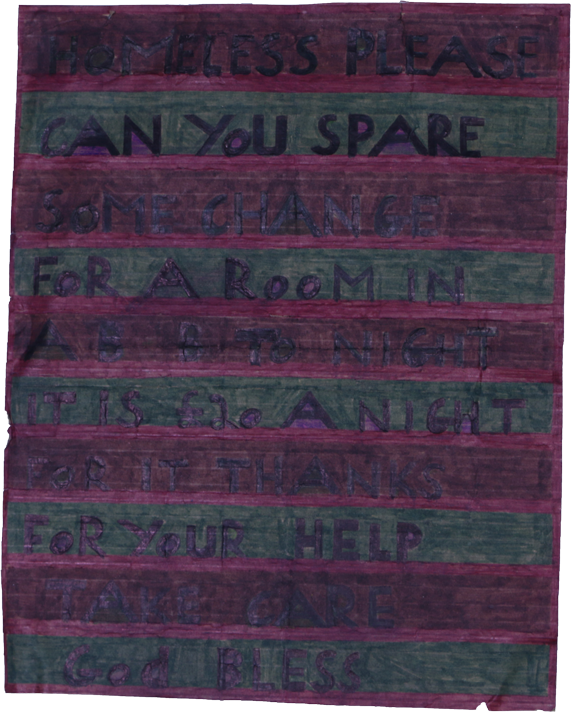 HOMELESS PLEASE
CAN YOU SPARE
SOME CHANGE
FOR A ROOM IN
A B & B TO NIGHT
IT IS £20 A NIGHT
FOR IT THANKS
FOR YOUR HELP
TAKE CARE
God BLESS